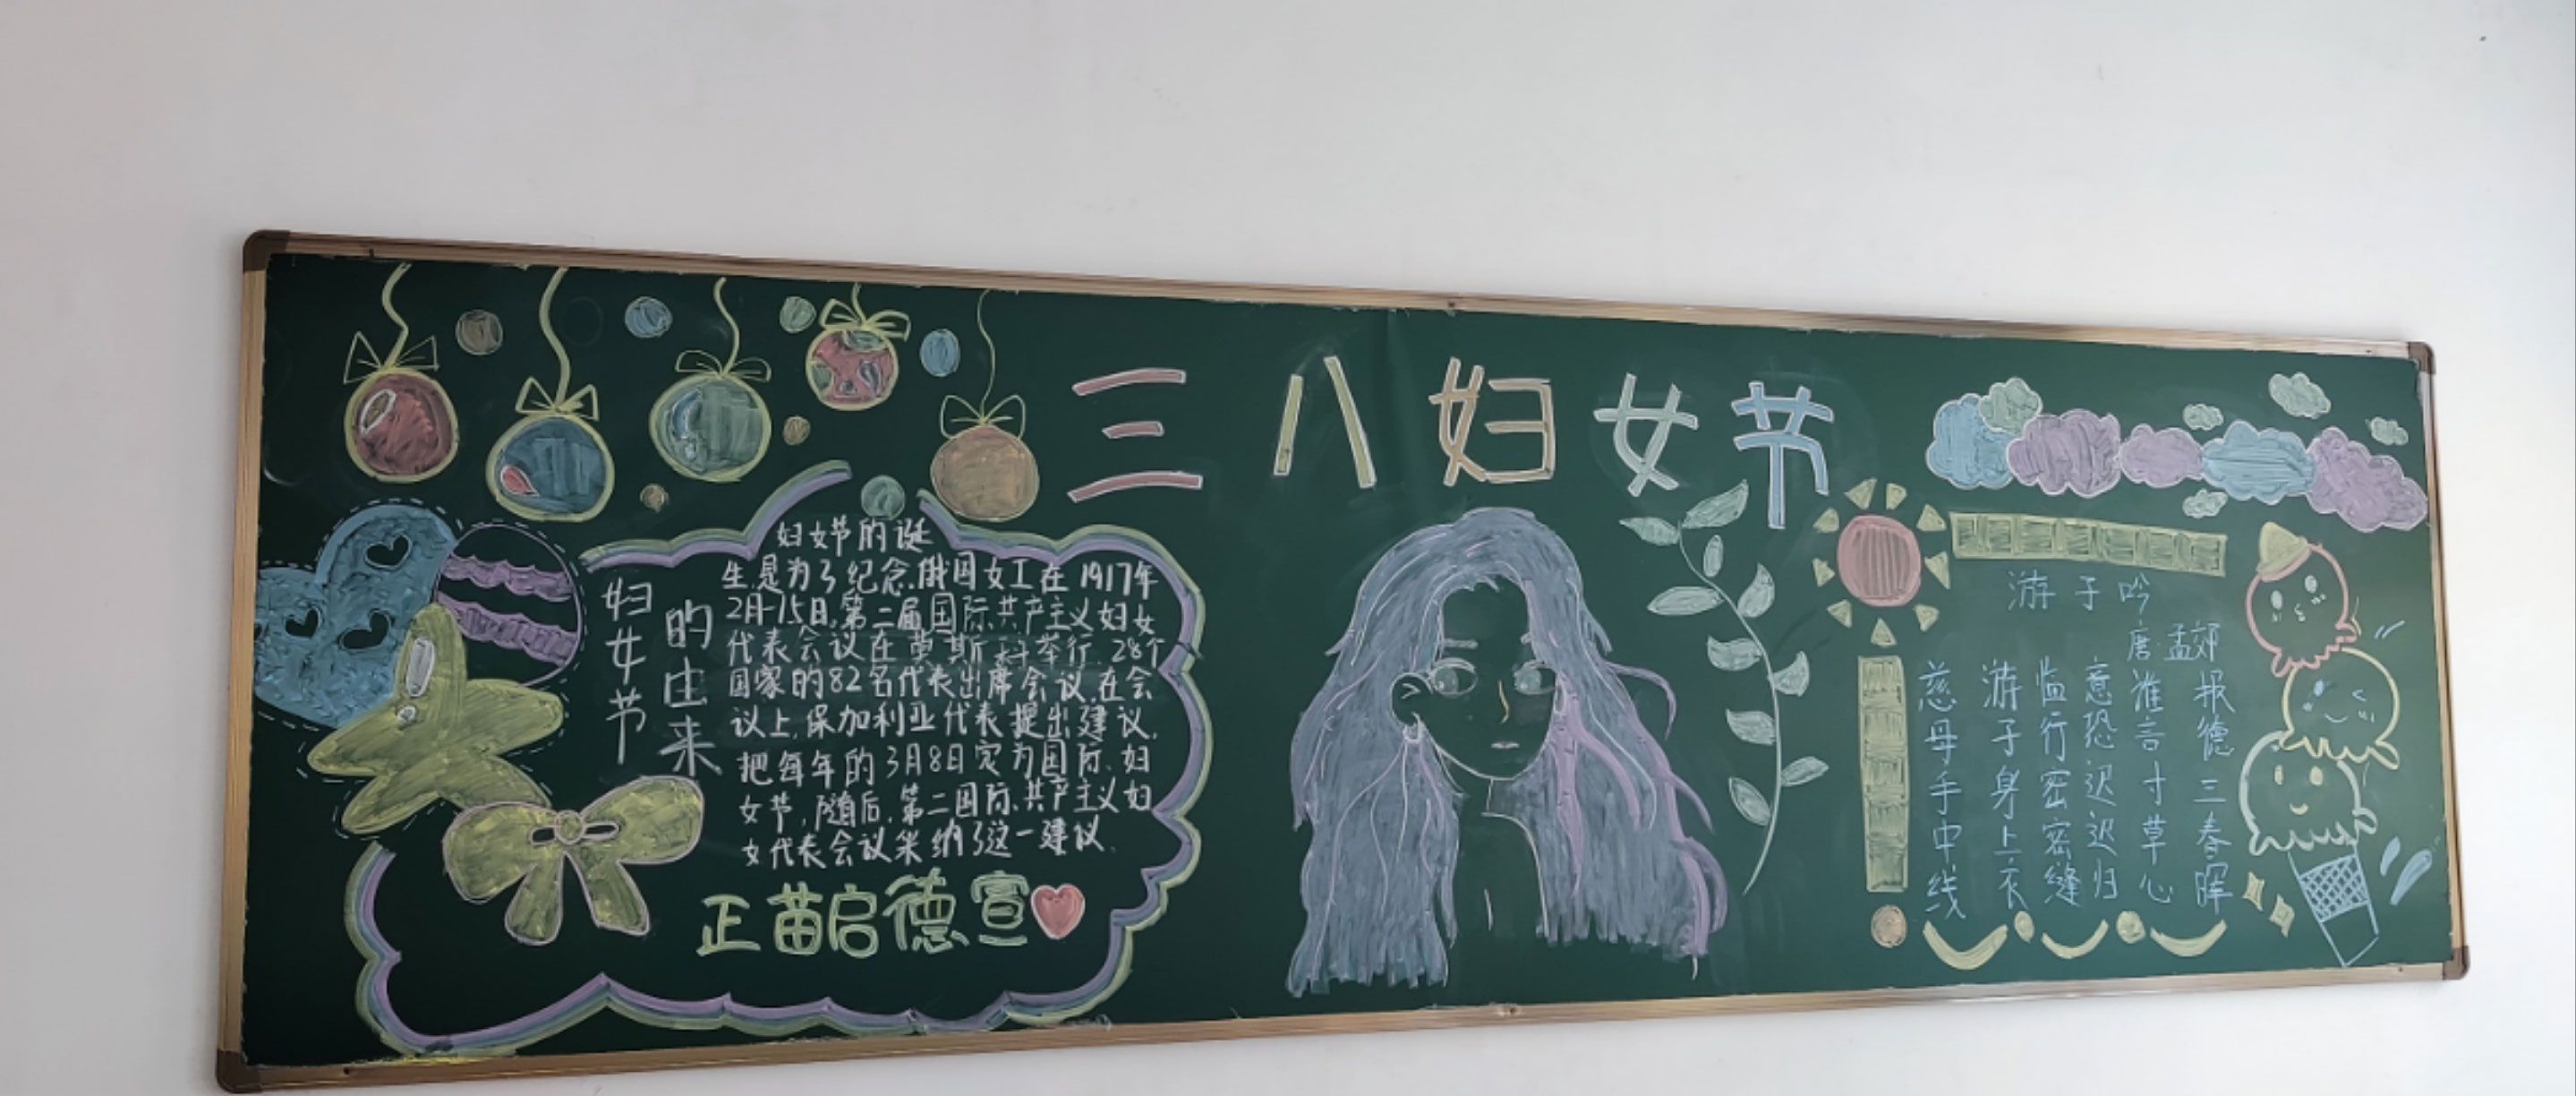 三八妇女节
妇女节
的由来
妇女节的诞
生是为了纪念俄国女工在1917年
2月15日,第二届国际共产主义妇女
代表会议在莫斯科举行 28个
国家的82名代表出席会议,在会
议上,保加利亚代表提出建议,
把每年的3月8日定为国际妇
女节,随后,第二国际共产主义妇
女代表会议采纳了这一建议.
正苗启德宣
游子吟
唐 孟郊
慈母手中线
游子身上衣
临行密密缝
意恐迟迟归
谁言寸草心
报德三春晖